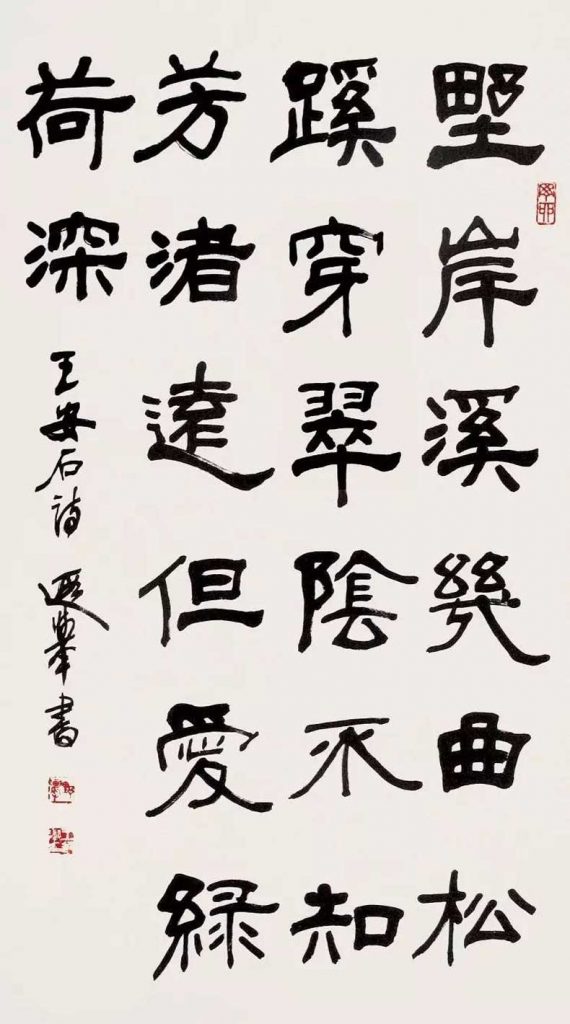 野岸溪幾曲松
蹊穿翠陰不知
芳渚遠但愛緑
荷深
王安石詩 遐舉書